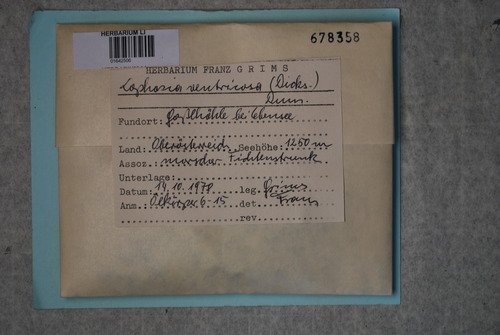 HERBARIUM LI
678358
HERBARIUM FRANZ GRIMS
Lophozia ventricosa (Dicks.)
Dum.
Fundort: Gaßlhöhle bei Ebensee
Land: Oberösterreich Seehöhe: 1250 m
Assoz. morscher Fichtenstrunk
Unterlage:
Datum: 14.10.1978 leg. Grims
Anm. Ölkörper 6-15 det. Franz
rev.